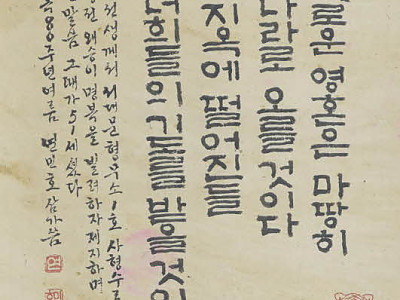 로운 영혼은 마땅히
나라로 오를 것이다
지옥에 떨어진들
너희들의 기도를 받을것이
선생께서 서대문형무소 1호 사형수로
왜승이 명복을 빌려하자 제지하며
말씀 그때가 51세셨다
80주년여름 변민호 삼가씀